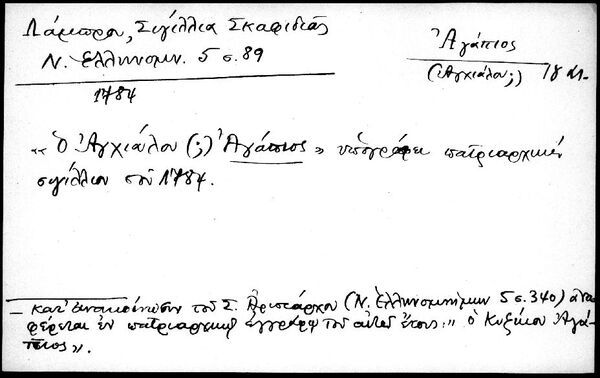 Λάμπρου, Σιγίλλια Σκαφιδιᾶς
Ν. Ἑλληνομν. 5 σ. 89
1784
Ἀγάπιος
(Ἀγχιάλου;)
« Ὁ Ἀγχιάλου (;) Ἀγάπιος » ὑπογράφει πατριαρχικὸν
σιγίλλιον τοῦ 1784.
— Κατ' ἀνακοίνωσιν τοῦ Σ. Ἀριστάρχου (Ν. Ἑλληνομνήμων 5 σ. 340) ἀνα-
φέρεται ἐν πατριαρχικῷ ἐγγράφῳ τοῦ αὐτοῦ ἔτους: « ὁ Κυζίκου Ἀγά-
πιος ».